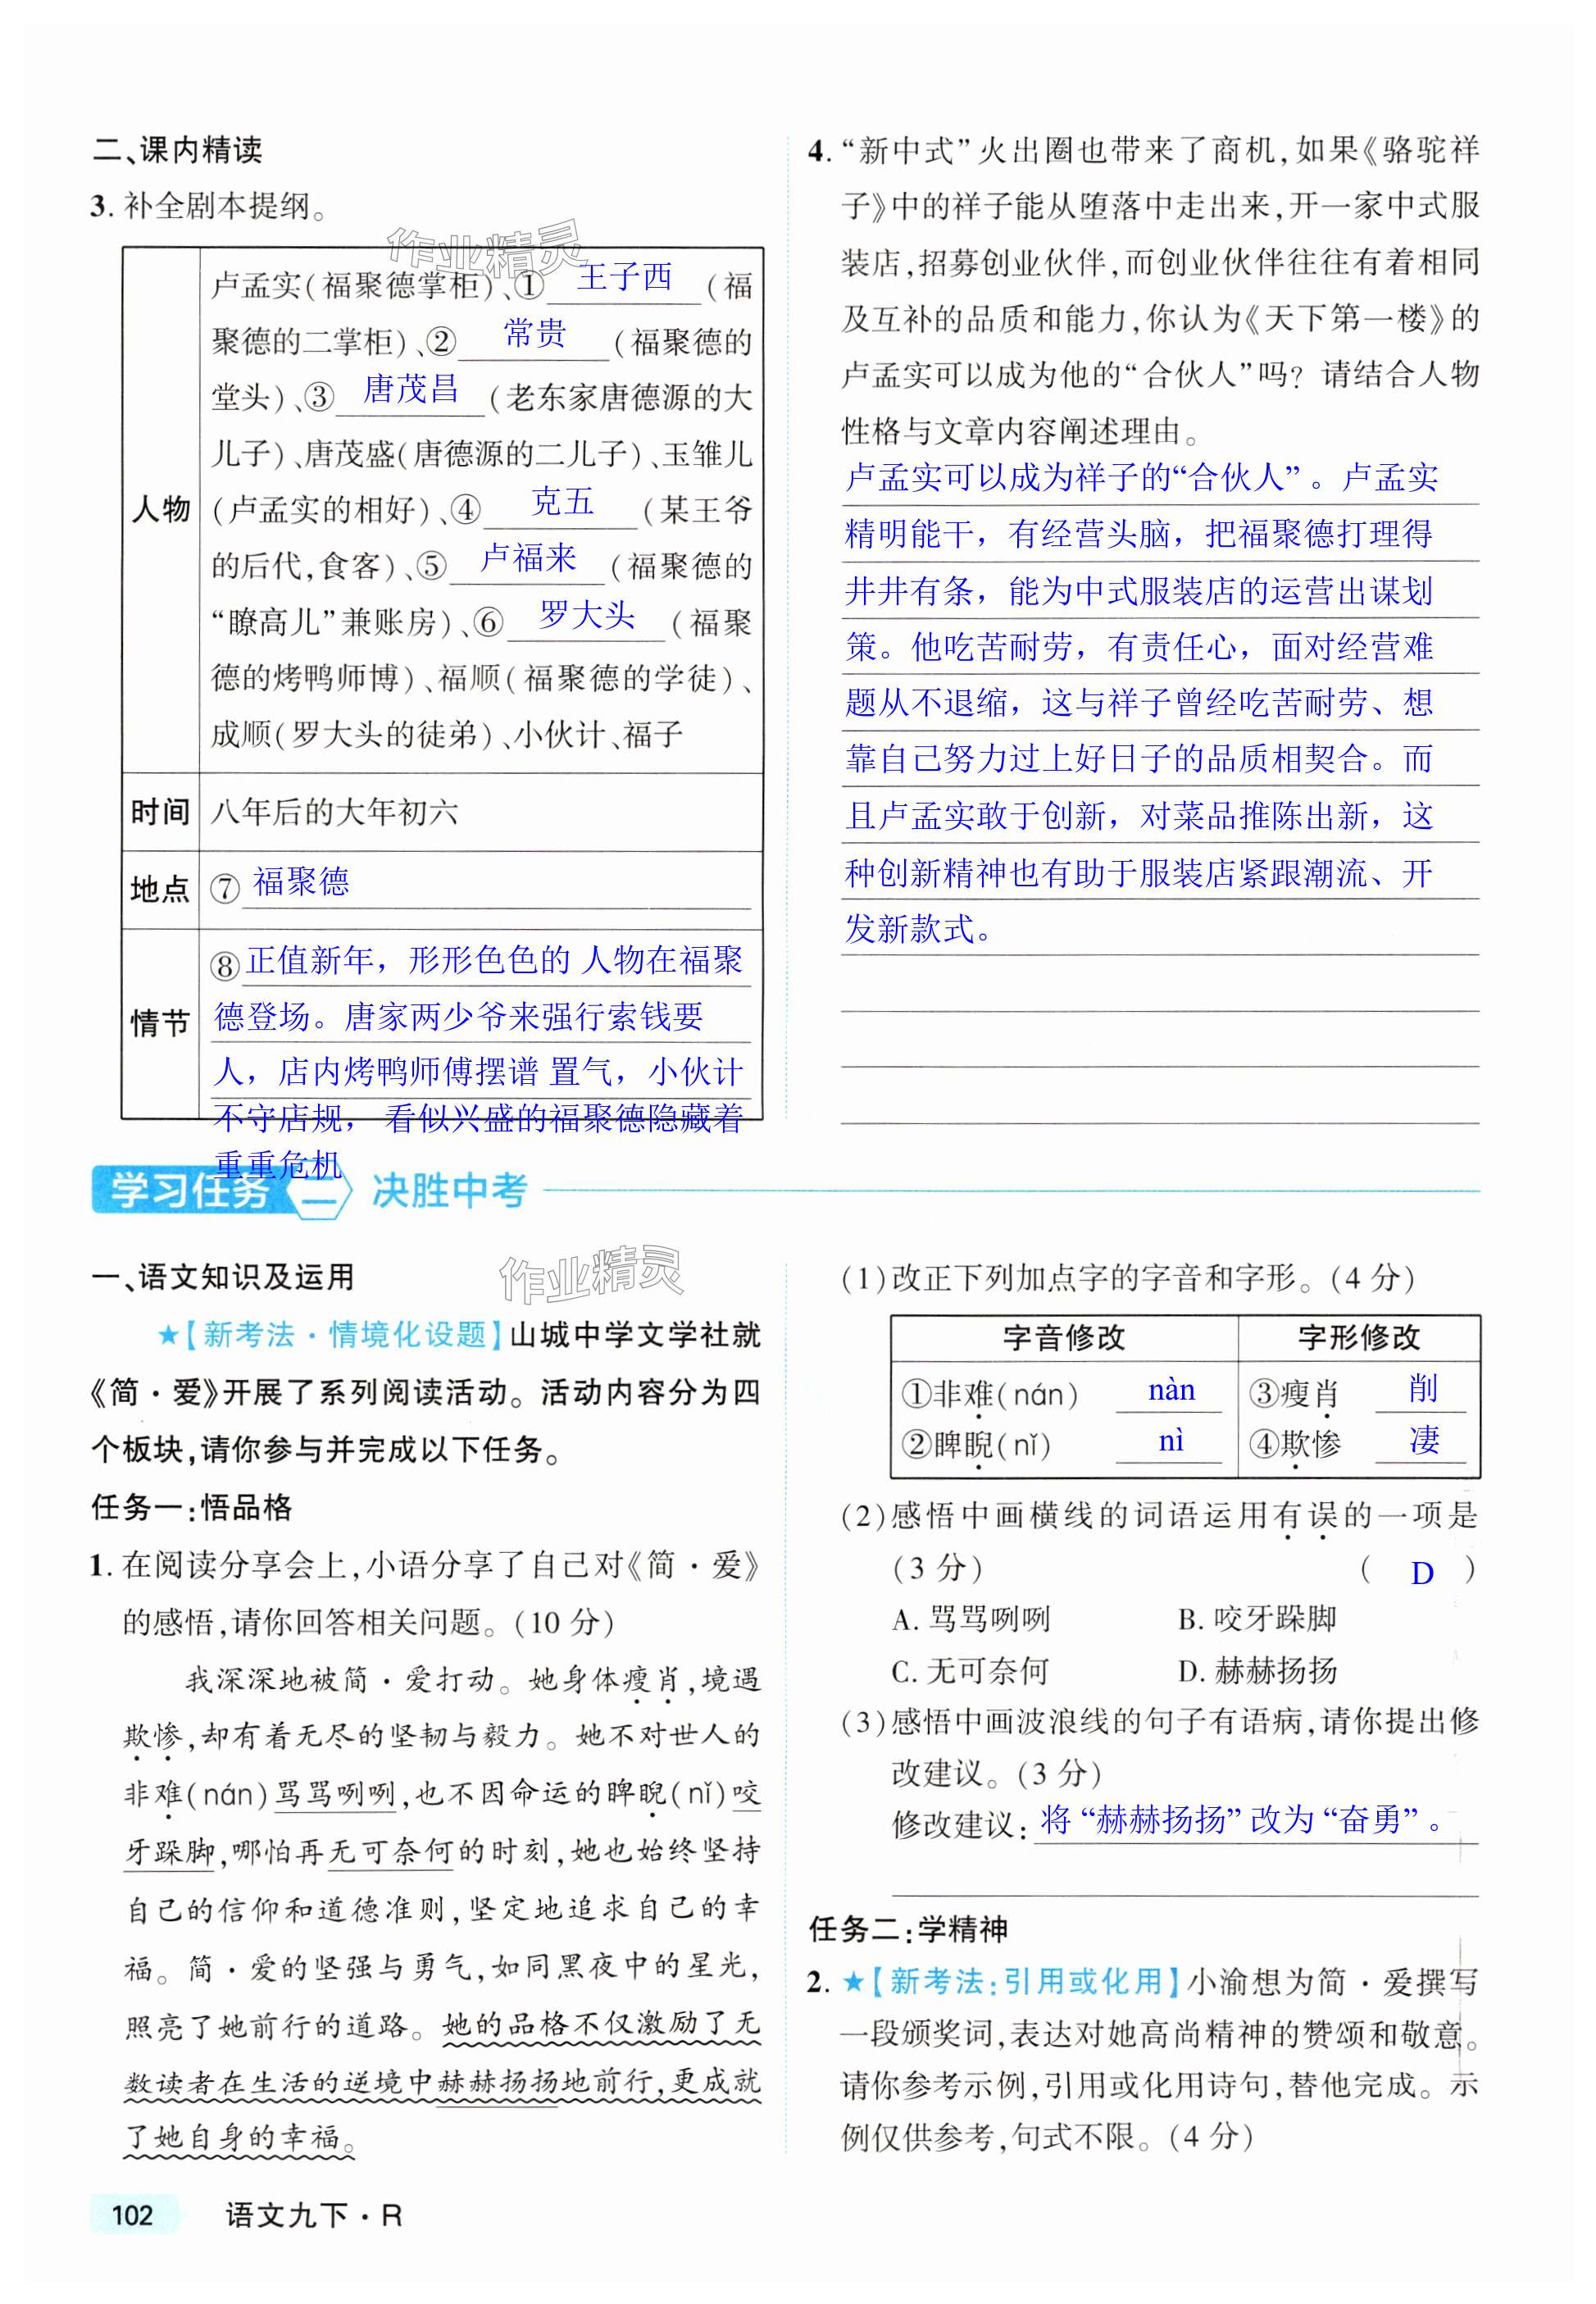 二、课内精读
3. 补全剧本提纲。
作业精灵
人物
卢孟实(福聚德掌柜)、①王子西(福
聚德的二掌柜)、②常贵(福聚德的
堂头)、③唐茂昌(老东家唐德源的大
儿子)、唐茂盛(唐德源的二儿子)、玉雏儿
(卢孟实的相好)、④克五(某王爷
的后代,食客)、⑤卢福来(福聚德的
“瞭高儿”兼账房)、⑥罗大头(福聚
德的烤鸭师博)、福顺(福聚德的学徒)、
成顺(罗大头的徒弟)、小伙计、福子
时间 八年后的大年初六
地点 ⑦福聚德
情节
⑧正值新年，形形色色的 人物在福聚
德登场。唐家两少爷来强行索钱要
人，店内烤鸭师傅摆谱 置气，小伙计
不守店规， 看似兴盛的福聚德隐藏着
重重危机
4. “新中式”火出圈也带来了商机,如果《骆驼祥
子》中的祥子能从堕落中走出来,开一家中式服
装店,招募创业伙伴,而创业伙伴往往有着相同
及互补的品质和能力,你认为《天下第一楼》的
卢孟实可以成为他的“合伙人”吗? 请结合人物
性格与文章内容阐述理由。
卢孟实可以成为祥子的“合伙人” 。卢孟实
精明能干，有经营头脑，把福聚德打理得
井井有条，能为中式服装店的运营出谋划
策。他吃苦耐劳，有责任心，面对经营难
题从不退缩，这与祥子曾经吃苦耐劳、想
靠自己努力过上好日子的品质相契合。而
且卢孟实敢于创新，对菜品推陈出新，这
种创新精神也有助于服装店紧跟潮流、开
发新款式。
学习任务二 决胜中考
一、语文知识及运用
作业精灵
★【新考法·情境化设题】山城中学文学社就
《简·爱》开展了系列阅读活动。活动内容分为四
个板块,请你参与并完成以下任务。
任务一:悟品格
1. 在阅读分享会上,小语分享了自己对《简·爱》
的感悟,请你回答相关问题。(10 分)
我深深地被简·爱打动。她身体瘦肖,境遇
欺惨,却有着无尽的坚韧与毅力。她不对世人的
非难(nán)骂骂咧咧,也不因命运的睥睨(nǐ)咬
牙跺脚,哪怕再无可奈何的时刻,她也始终坚持
自己的信仰和道德准则,坚定地追求自己的幸
福。简·爱的坚强与勇气,如同黑夜中的星光,
照亮了她前行的道路。她的品格不仅激励了无
数读者在生活的逆境中赫赫扬扬地前行,更成就
了她自身的幸福。
(1)改正下列加点字的字音和字形。(4 分)
字音修改 字形修改
①非难(nán) nàn ③瘦肖 削
②睥睨(nǐ) nì ④欺惨 凄
(2)感悟中画横线的词语运用有误的一项是
(3 分) ( D )
A. 骂骂咧咧 B. 咬牙跺脚
C. 无可奈何 D. 赫赫扬扬
(3)感悟中画波浪线的句子有语病,请你提出修
改建议。(3 分)
修改建议:将 “赫赫扬扬” 改为 “奋勇” 。
任务二:学精神
2. ★【新考法:引用或化用】小渝想为简·爱撰写
一段颁奖词,表达对她高尚精神的赞颂和敬意。
请你参考示例,引用或化用诗句,替他完成。示
例仅供参考,句式不限。(4 分)
102 语文九下·R